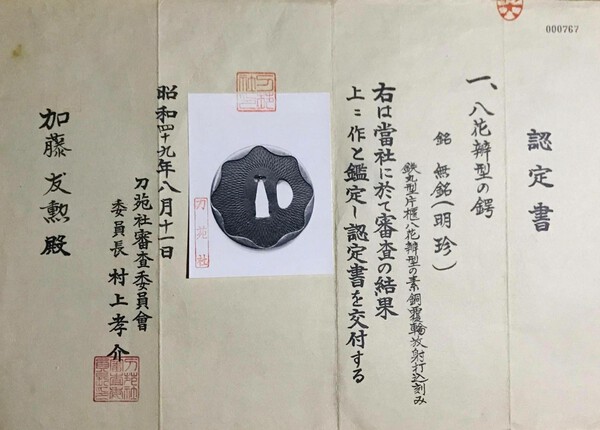 000767
認定書
一、八花辧型の鍔
銘 無銘(明珍)
鉄丸型片櫃八花辧型の素銅覆輪放射打込刻み
右は當社に於て審査の結果
上ニ作と鑑定し認定書を交付する
刀苑社
昭和四十九年八月十一日
刀苑社審査委員會
委員長 村上孝介
加藤友勲殿